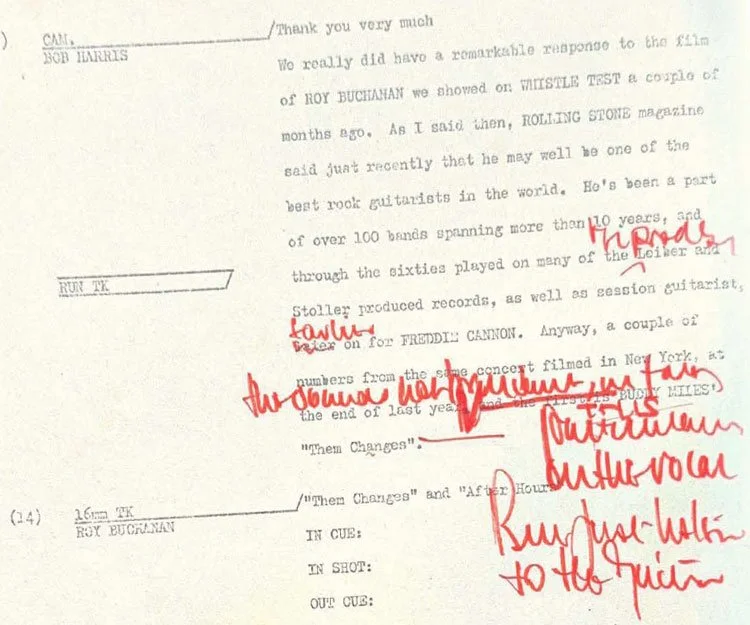 ) CAM. /Thank you very much
BOB HARRIS
We really did have a remarkable response to the film
of ROY BUCHANAN we showed on WHISTLE TEST a couple of
months ago. As I said then, ROLLING STONE magazine
said just recently that he may well be one of the
best rock guitarists in the world. He's been a part
of over 100 bands spanning more than 10 years, and
through the sixties played on many of the Leiber and
RUN TK
Stoller produced records, as well as session guitarist,
earlier
on for FREDDIE CANNON. Anyway, a couple of
numbers from the same concert filmed in New York, at
the sound's not
the end of last year, and the first is BUDDY MILES'
THIS
"Them Changes".
on the vocal
(14) 16mm TK /"Them Changes" and "After Hours
ROY BUCHANAN
But just listen
IN CUE:
to the guitar
IN SHOT:
OUT CUE: